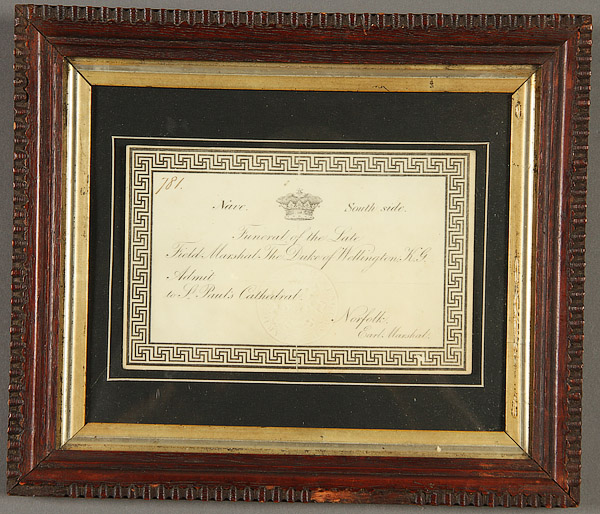 781.
Nave. South side.
Funeral of the Late
Field Marshal The Duke of Wellington, K.G.
Admit
to St. Paul's Cathedral.
Norfolk,
Earl Marshal.